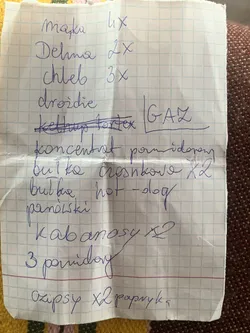 mąka 4x
Delma 2x
chleb 3x
drożdże
GAZ
ketchup tortex
koncentrat pomidorowy
bułka orkiszkowa x2
bułka hot-dog
parówski
Kabanosy x2
3 pomidory
czipsy x2 papryka